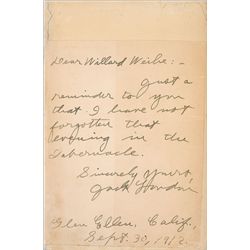 Dear Willard Weihe:-
Just a
reminder to you
that I have not
forgotten that
evening in the
Tabernacle.
Sincerely yours,
Jack London
Glen Ellen, Calif.
Sept. 30, 1912.